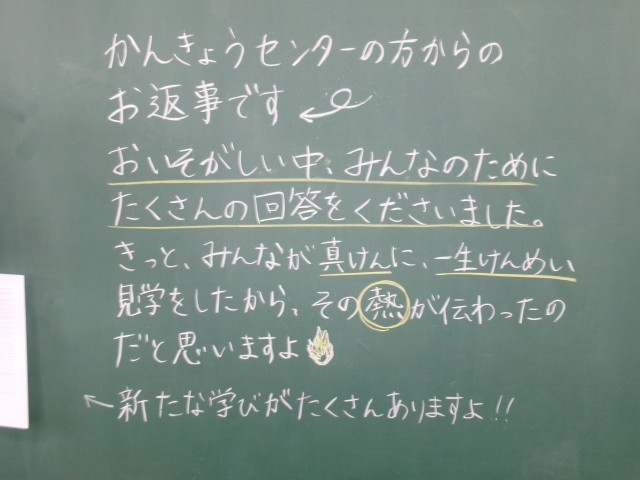 かんきょうセンターの方からの
お返事です
おいそがしい中、みんなのために
たくさんの回答をくださいました。
きっと、みんなが真けんに、一生けんめい
見学をしたから、その熱が伝わったの
だと思いますよ
←新たな学びがたくさんありますよ!!